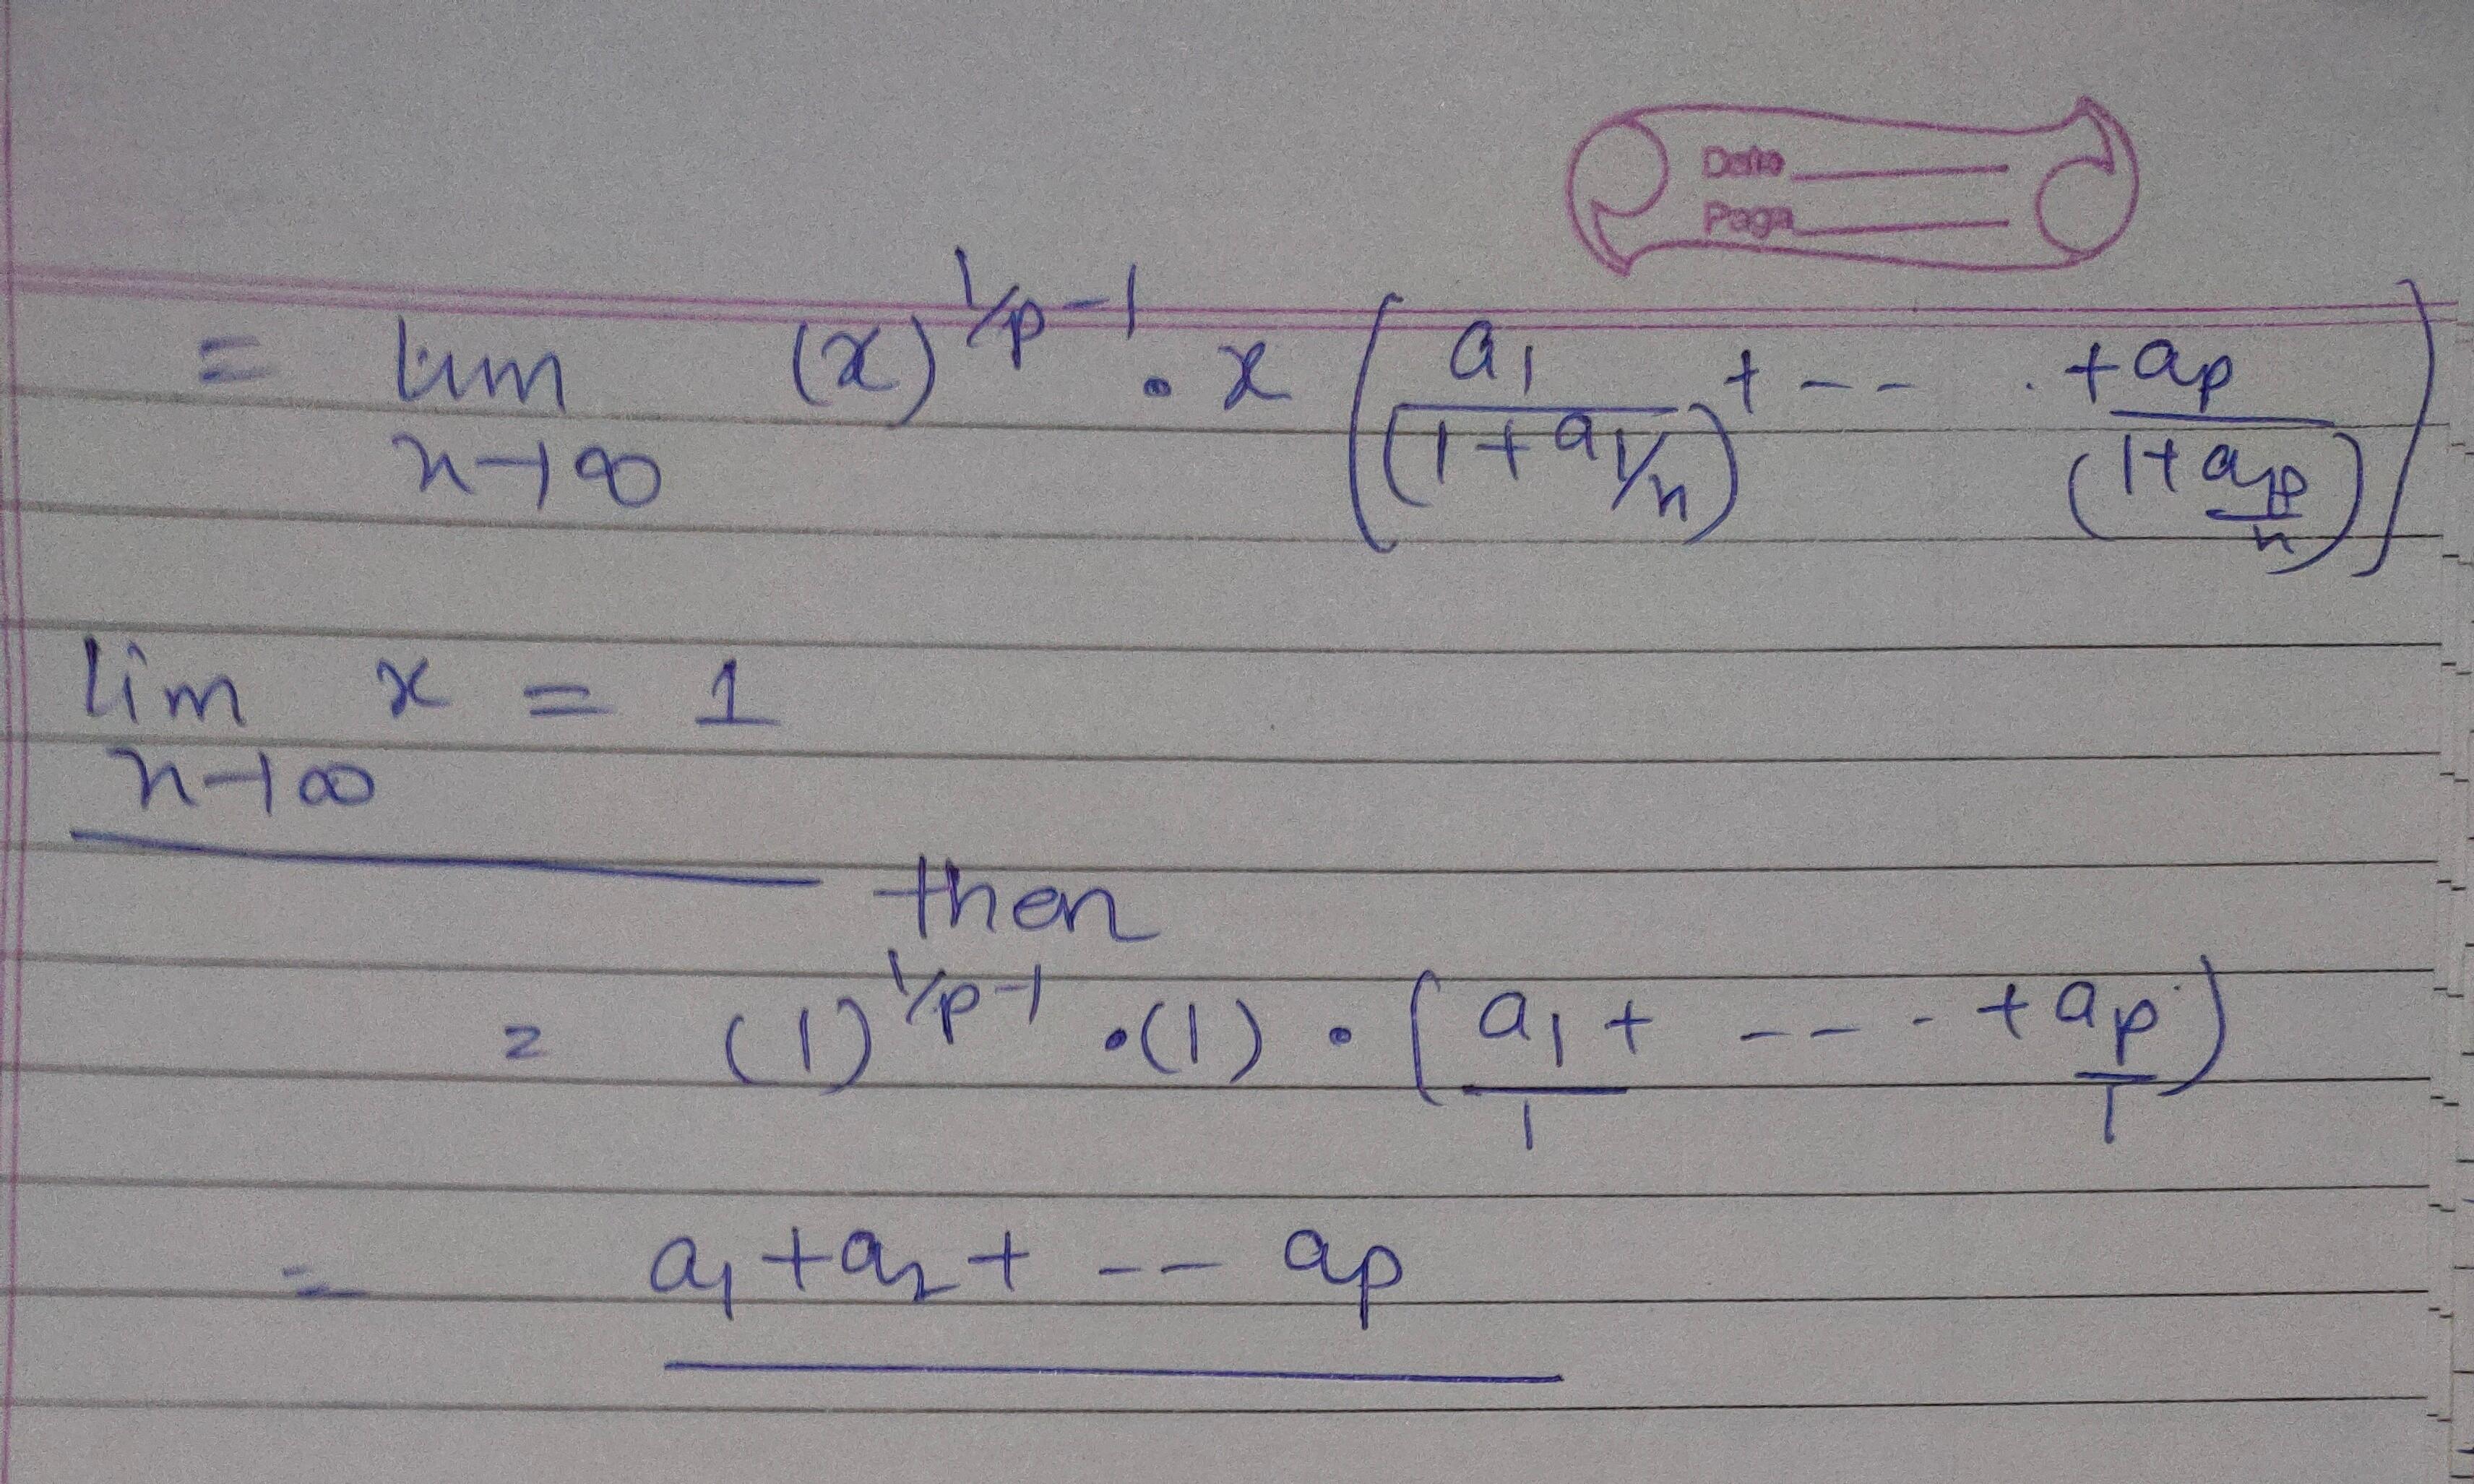 Date
Page
= lim n→∞ (x)^{1/p-1} . x (a₁/(1+a₁/n) + -- . + aₚ/(1+aₚ/n))
lim n→∞ x = 1
then
= (1)^{1/p-1} .(1) . (a₁/1 + --- + aₚ/1)
= a₁ + a₂ + -- aₚ